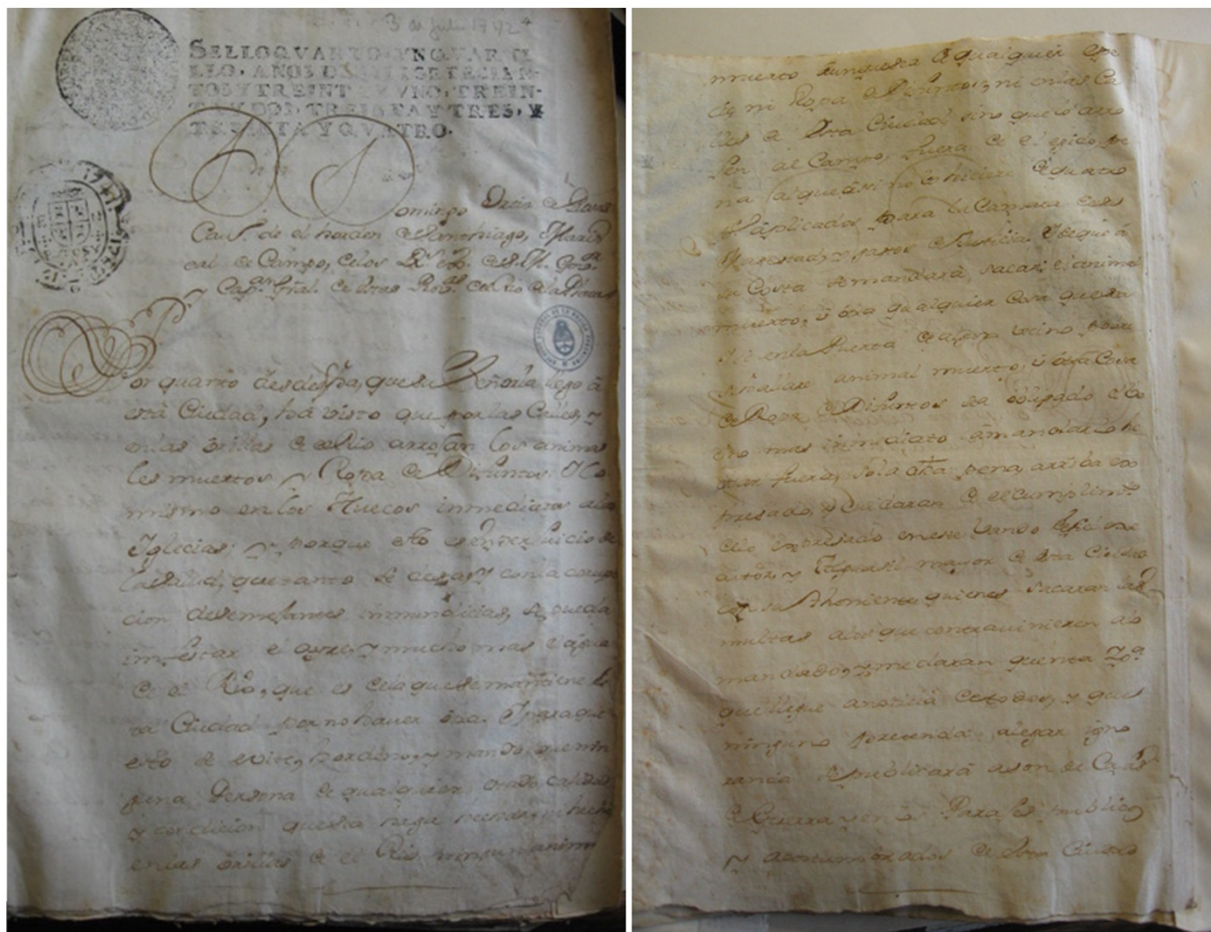 3 de Julio 1742
SELLO QVARTO, VN QVARTI
LLO, AÑOS DE MIL SETECIEN-
TOS Y TREINTA Y VNO, TREIN-
TA Y DOS, TREINTA Y TRES, Y
TREINTA Y QVATRO.
Domingo Ortiz de Rosas
Cau. de el horden de Santhiago, Maris
cal de Campo, de los Rs. exs. de S. M. Gov.or
Cap.n Gral. de estas Prov. del Rio de la Plata
Por quanto desde q̃ a su Señoria llego à
esta Ciudad, ha visto que por las Calles, y
en las orillas de el Rio arrojan los anima
les muertos y Ropa de Difuntos. Y lo
mismo en los Huecos inmediatos a las
Iglecias; y porque esto es en perjuicio de
la salud, que tanto se desea, y con la corrup
cion de semejantes inmundicias, se puede
infestar el ayre, y mucho mas el agua
de el Rio, que es de la que se mantiene es
ta Ciudad por no hauer otra. Y para que
esto se evite, hordeno, y mando, que nin
guna Persona de qualquier grado calidad
y condicion que sea haga hechar, ni heche
en las orillas de el Rio, ningun animal
muerto aunque sea de qualquier espe
cie, ni Ropa de Difuntos, ni en las Ca
lles de esta Ciudad sino que lo arro
jen al Campo, fuera de el egido, pe
na al que assi no lo hiciere de quatro
aplicados para la Camara de su
Magestad, y gastos de Justicia. Y de que à
su Costa se mandarà sacar el animal
muerto, ù otra qualquier Cosa que sea
Y si en la Puerta de algun vecino
animal muerto, ù otra Cosa
de Ropa de Difuntos sea obligado el
mas inmediato à mandarlo he
char fuera, so la dha pena, arriba ex
presada, y cuidaran de el cumplim.to
de lo expresado en este Vando
Alguasil mayor de esta Ciudad
ò su Theniente, quienes sacaran las
multas à los que contravinieren à lo
mandado, y me daran quenta. Y p.a
que llegue a noticia de todos, y que
ninguno pretenda alegar igno
rancia se publicarà a son de Caxas
de Guerra y en las Partes publicas
y acostumbradas de esta Ciudad